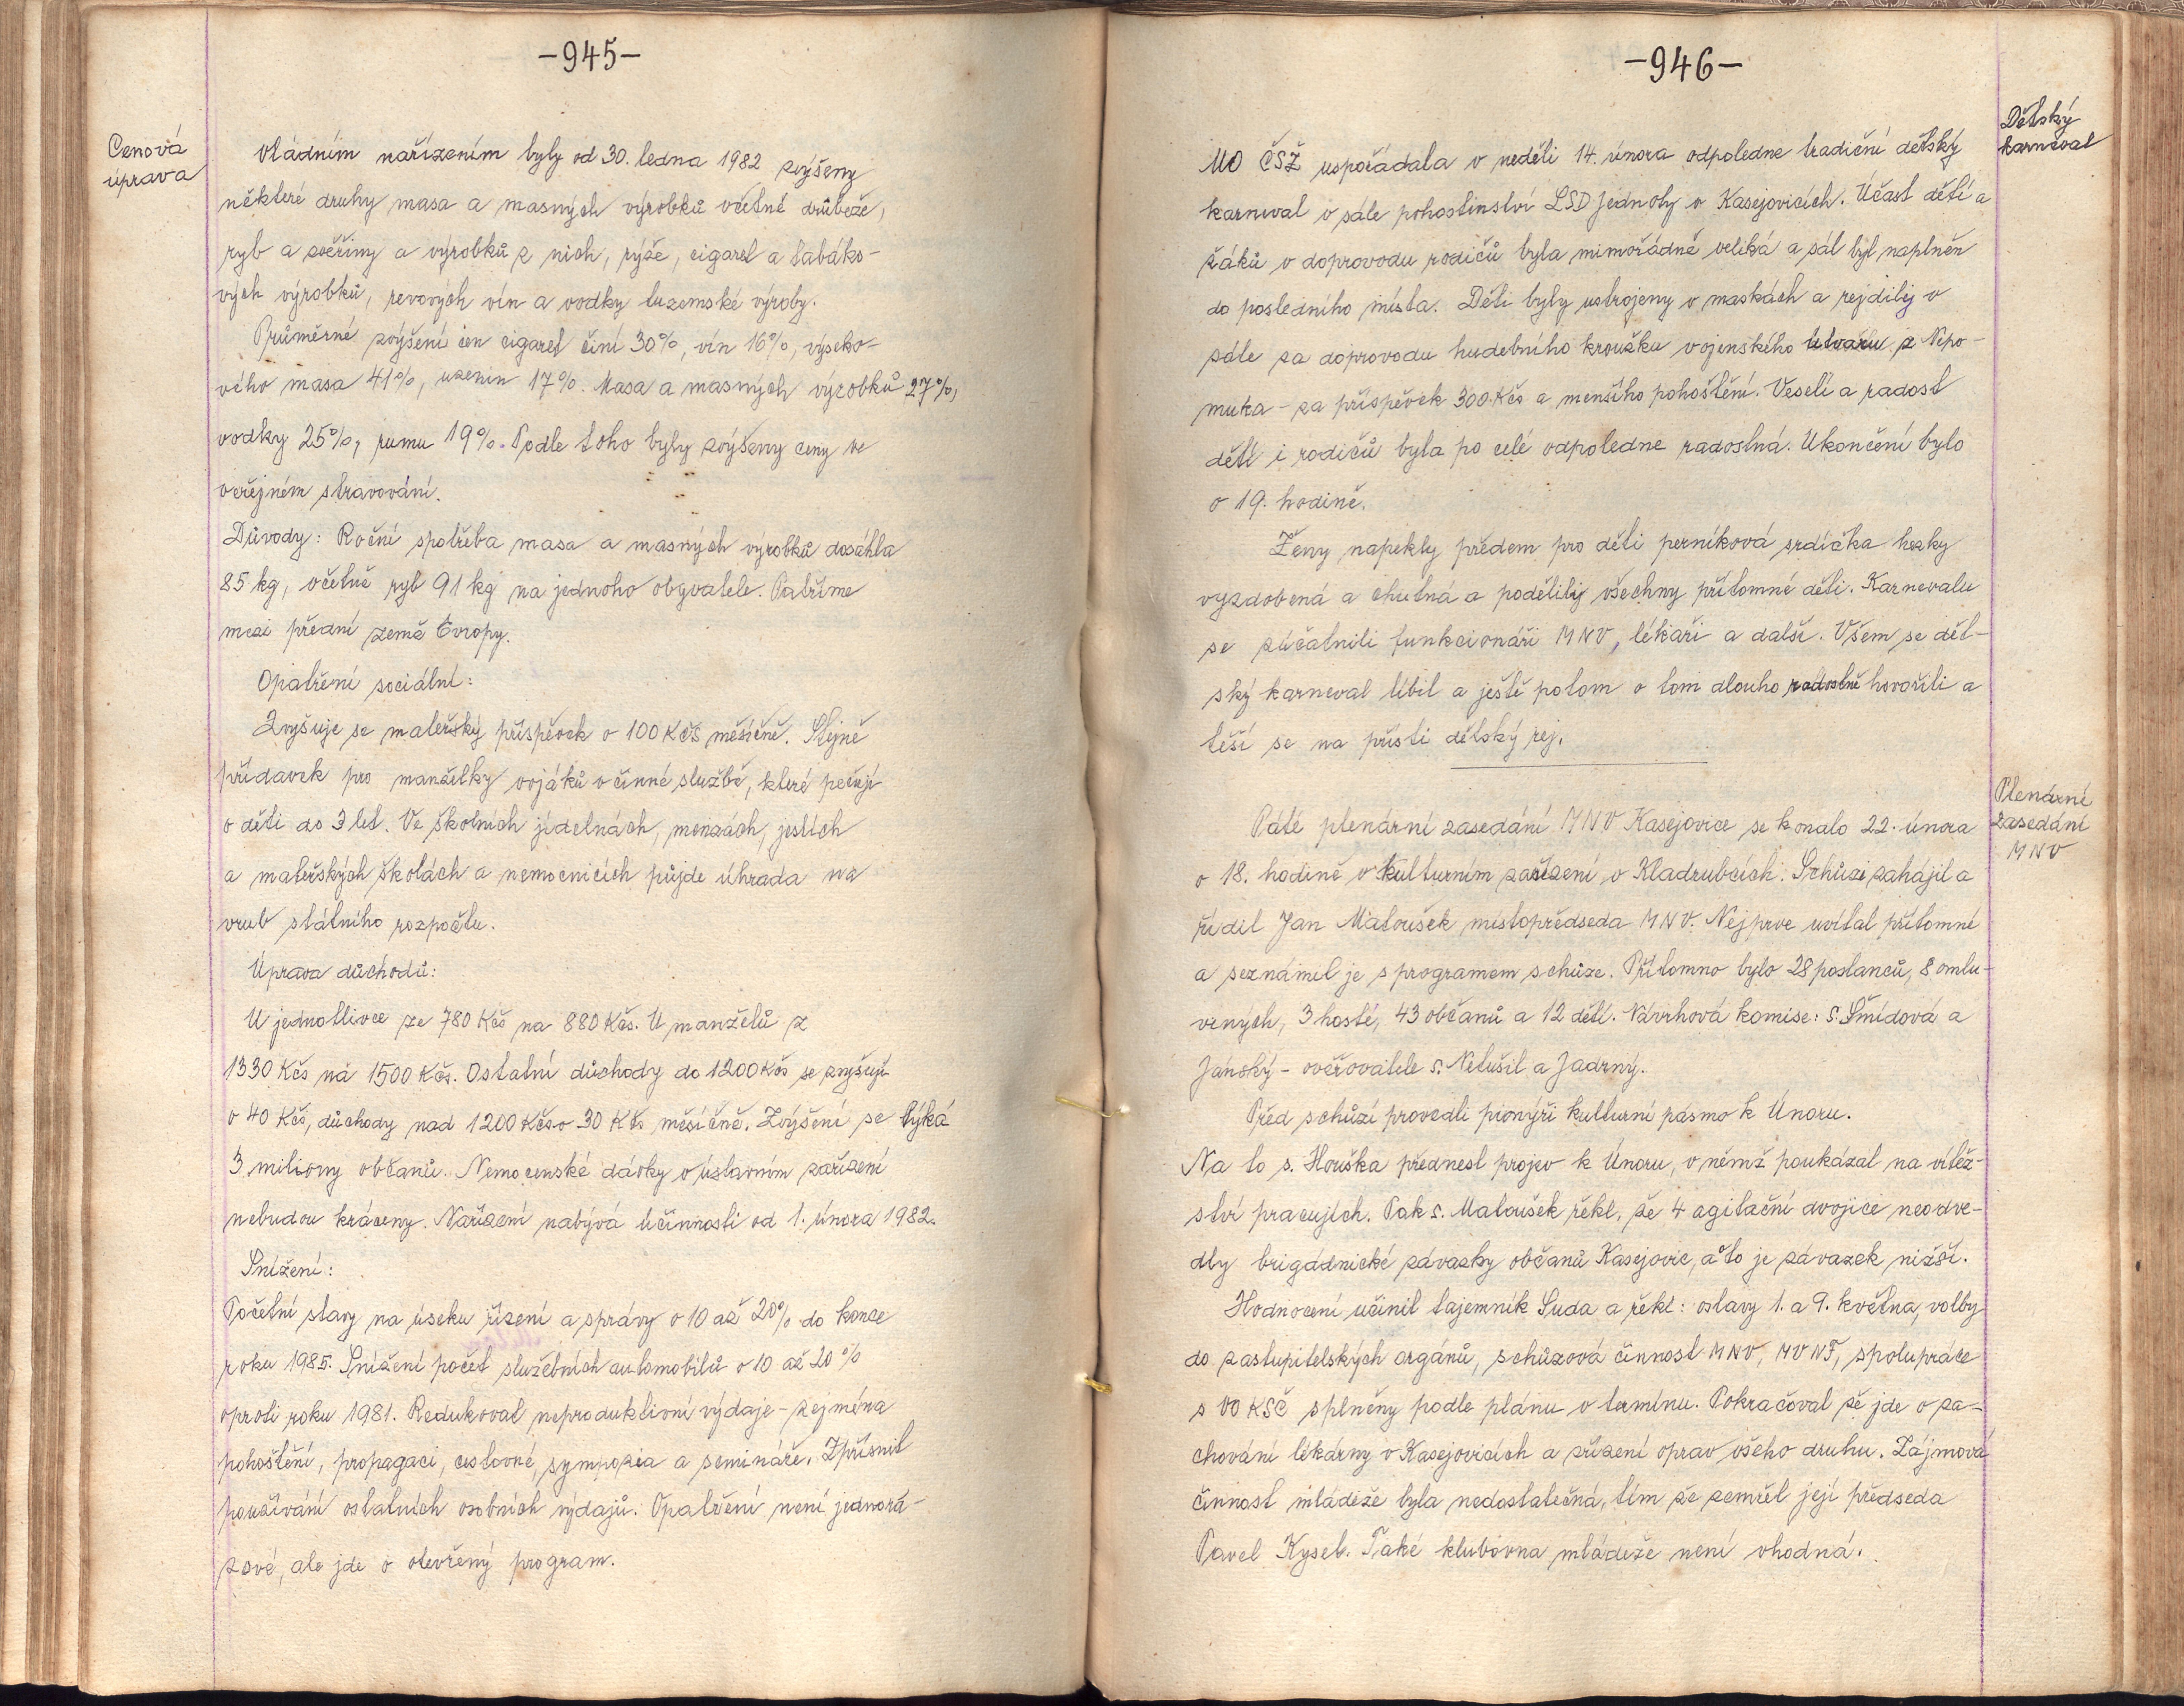 -945-
Cenová
úprava
Vládním nařízením byly od 30. ledna 1982 zvýšeny
některé druhy masa a masných výrobků včetně drůbeže,
ryb a zvěřiny a výrobků z nich, rýže, cigaret a tabáko-
vých výrobků, révových vín a vodky tuzemské výroby.
Průměrné zvýšení cen cigaret činí 30%, vín 16%, výseko-
vého masa 41%, uzenin 17%. Masa a masných výrobků 27%,
vodky 25%, rumu 19%. Podle toho byly zvýšeny ceny ve
veřejném stravování.
Důvody: Roční spotřeba masa a masných výrobků dosáhla
85 kg, včetně ryb 91 kg na jednoho obyvatele. Patříme
mezi přední země Evropy.
Opatření sociální:
Zvyšuje se mateřský příspěvek o 100 Kčs měsíčně. Stejně
přídavek pro manželky vojáků v činné službě, které pečují
o děti do 3 let. Ve školních jídelnách, menzách, jeslích
a mateřských školách a nemocnicích půjde úhrada na
vrub státního rozpočtu.
Úprava důchodů:
U jednotlivce ze 780 Kčs na 880 Kčs. U manželů z
1330 Kčs na 1500 Kčs. Ostatní důchody do 1200 Kčs se zvyšují
o 40 Kčs, důchody nad 1200 Kčs o 30 Kčs měsíčně. Zvýšení se týká
3 miliony občanů. Nemocenské dávky v ústavním zařízení
nebudou kráceny. Nařízení nabývá účinnosti od 1. února 1982.
Snížení:
Početní stavy na úseku řízení a správy o 10 až 20% do konce
roku 1985. Snížení počet služebních automobilů o 10 až 20%
oproti roku 1981. Redukovat neproduktivní výdaje - zejména
pohoštění, propagaci, cestovné, sympozia a semináře. Zpřísnit
používání ostatních osobních výdajů. Opatření není jednorá-
zové, ale jde o otevřený program.
-946-
Dětský
karneval
MO ČSŽ uspořádala v neděli 14. února odpoledne tradiční dětský
karneval v sále pohostinství LSD Jednoty v Kasejovicích. Účast dětí a
žáků v doprovodu rodičů byla mimořádně veliká a sál byl naplněn
do posledního místa. Děti byly ustrojeny v maskách a rejdily v
sále za doprovodu hudebního kroužku vojenského útvaru z Nepo-
muka - za příspěvek 300 Kčs a menšího pohoštění. Veselí a radost
dětí i rodičů byla po celé odpoledne radostná. Ukončení bylo
v 19. hodině.
Ženy napekly předem pro děti perníková srdíčka hezky
vyzdobená a chutná a podělily všechny přítomné děti. Karnevalu
se zúčatnili funkcionáři MNV, lékaři a další. Všem se dět-
ský karneval líbil a ještě potom o tom dlouho radostně hovořili a
těší se na příští dětský rej.
Plenární
zasedání
MNV
Páté plenární zasedání MNV Kasejovice se konalo 22. února
v 18. hodině v kulturním zařízení v Kladrubcích. Schůzi zahájil a
řídil Jan Matoušek místopředseda MNV. Nejprve uvítal přítomné
a seznámil je s programem schůze. Přítomno bylo 28 poslanců, 8 omlu-
vených, 3 hosté, 43 občanů a 12 dětí. Návrhová komise: s. Šmídová a
Jánský - ověřovatele s. Netušil a Jadrný.
Před schůzí provedli pionýři kulturní pásmo k Únoru.
Na to s. Houška přednesl projev k Únoru, v němž poukázal na vítěz-
ství pracujích. Pak s. Matoušek řekl, že 4 agitační dvojice neodve-
dly brigádnické závazky občanů Kasejovic, a to je závazek nižší.
Hodnocení učinil tajemník Suda a řekl: oslavy 1. a 9. května, volby
do zastupitelských orgánů, schůzová činnost MNV, MV NF, spolupráce
s VO KSČ splněny podle plánu v termínu. Pokračoval že jde o za-
chování lékárny v Kasejovicích a zřízení oprav všeho druhu. Zájmová
činnost mládeže byla nedostatečná, tím že zemřel její předseda
Pavel Kysel. Také klubovna mládeže není vhodná.